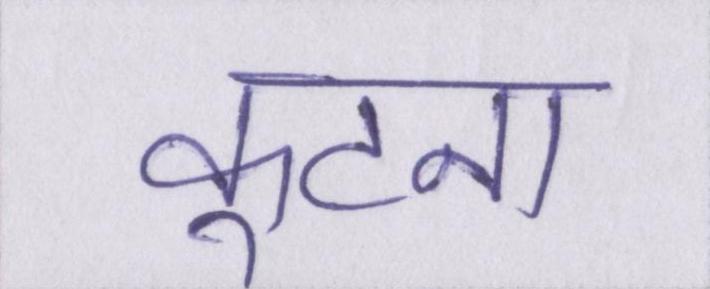 कूटना